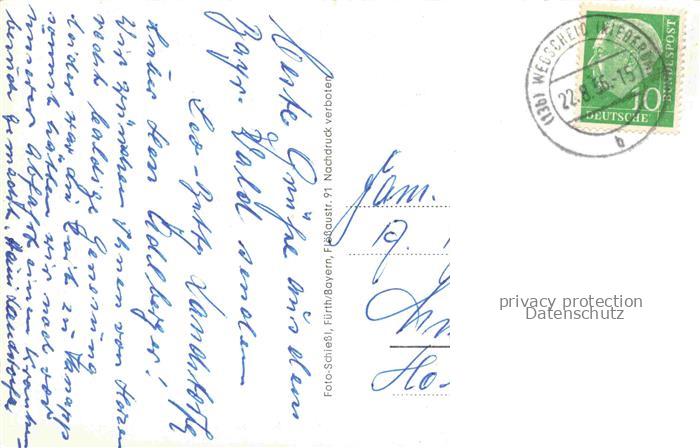 Beste Grüße aus dem
Bayr. Wald senden
Leo-Betty Landstorfer
Lieber Herr Edelberger!
Wir wünschen Ihnen von Herzen
recht baldige Genesung
leider war die Zeit zu knapp
sonst hätten wir noch vor
unserer Abfahrt einen Kranken-
besuch gemacht.
Foto-Schießl, Fürth/Bayern, Flößaustr. 91 Nachdruck verboten
Fam.
(13b) WEGSCHEID (NIEDERB
22.8.56.-15
b
10
DEUTSCHE
BUNDESPOST
privacy protection
Datenschutz